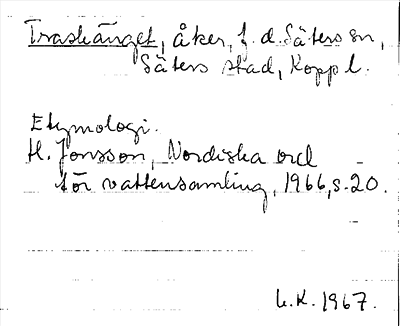 Traskänget, åker, f. d. Säters sn,
Säters stad, Kopp l.
Etymologi.
H. Jonsson, Nordiska ord
för vattensamling, 1966, s. 20.
L.K. 1967.